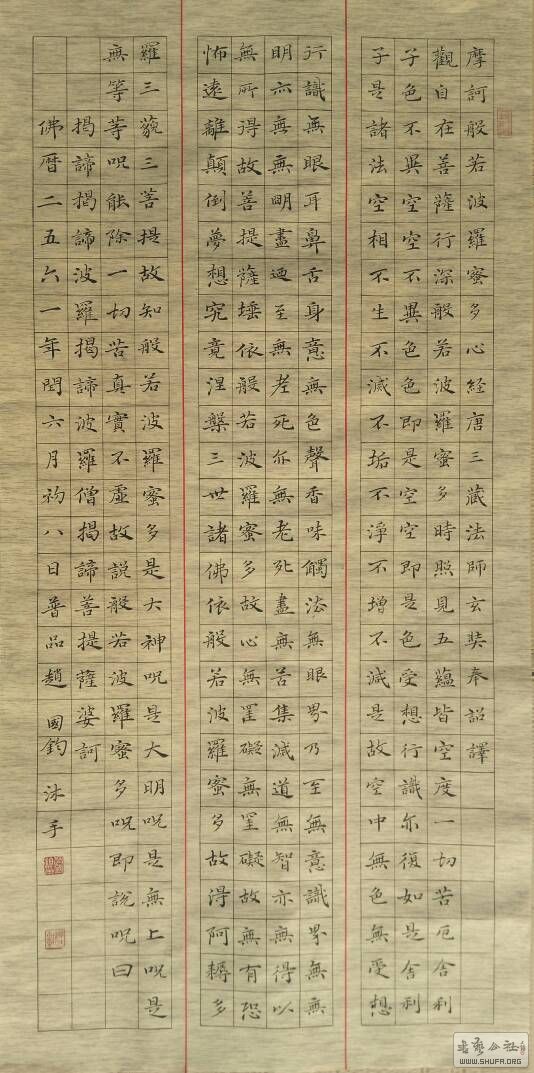 摩訶般若波羅蜜多心經唐三藏法師玄奘奉詔譯
觀自在菩薩行深般若波羅蜜多時照見五蘊皆空度一切苦厄舍利
子色不異空空不異色色即是空空即是色受想行識亦復如是舍利
子是諸法空相不生不滅不垢不淨不增不減是故空中無色無受想
行識無眼耳鼻舌身意無色聲香味觸法無眼界乃至無意識界無無
明亦無無明盡迺至無老死亦無老死盡無苦集滅道無智亦無得以
無所得故菩提薩埵依般若波羅蜜多故心無罣礙無罣礙故無有恐
怖遠離顛倒夢想究竟涅槃三世諸佛依般若波羅蜜多故得阿耨多
羅三藐三菩提故知般若波羅蜜多是大神呪是大明呪是無上呪是
無等等呪能除一切苦真實不虛故說般若波羅蜜多呪即說呪曰
揭諦揭諦波羅揭諦波羅僧揭諦菩提薩婆訶
佛暦二五六一年閏六月初八日普品趙國鈞沐手
书艺公社
WWW.SHUFR.ORG